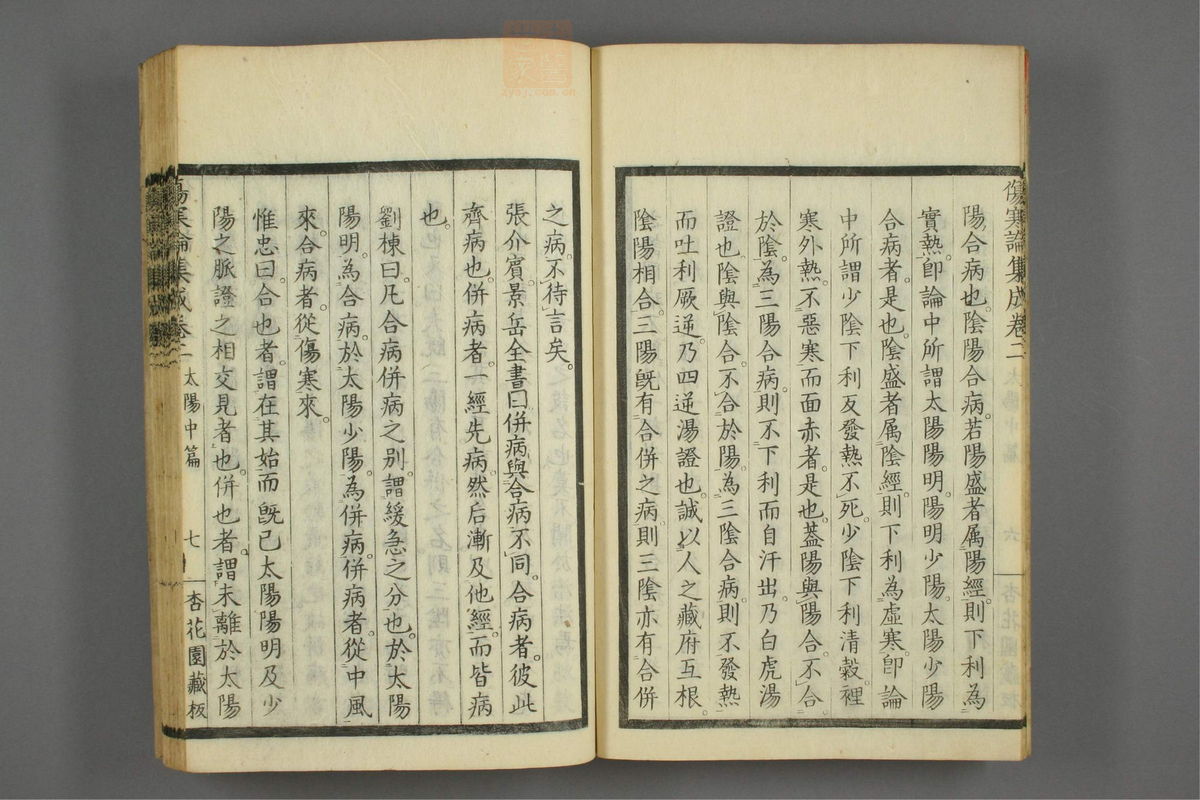 傷寒論集成卷二
陽合病也陰陽合病若陽盛者属陽經則下利為
實熱卽論中所謂太陽陽明陽明少陽太陽少陽
合病者是也陰盛者属陰經則下利為虛寒卽論
中所謂少陰下利反發熱不死少陰下利清穀裡
寒外熱不惡寒而面赤者是也蓋陽與陽合不合
於陰為三陽合病則不下利而自汗出乃白虎湯
證也陰與陰合不合於陽為三陰合病則不發熱
而吐利厥逆乃四逆湯證也誠以人之藏府互根
陰陽相合三陽旣有合併之病則三陰亦有合併
之病不待言矣
張介賓景岳全書曰併病與合病不同合病者彼此
齊病也併病者一經先病然后漸及他經而皆病
也
劉棟曰凡合病併病之別謂緩急之分也於太陽
陽明為合病於太陽少陽為併病併病者從中風
來合病者從傷寒來
惟忠曰合也者謂在其始而旣已太陽陽明及少
陽之脈證之相交見者也併也者謂未離於太陽
傷寒論集成卷二 太陽中篇 七 杏花園藏板